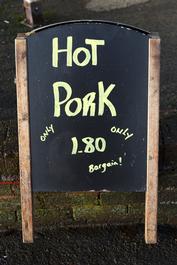 HOT
PORK
ONLY ONLY
1.80
Bargain!